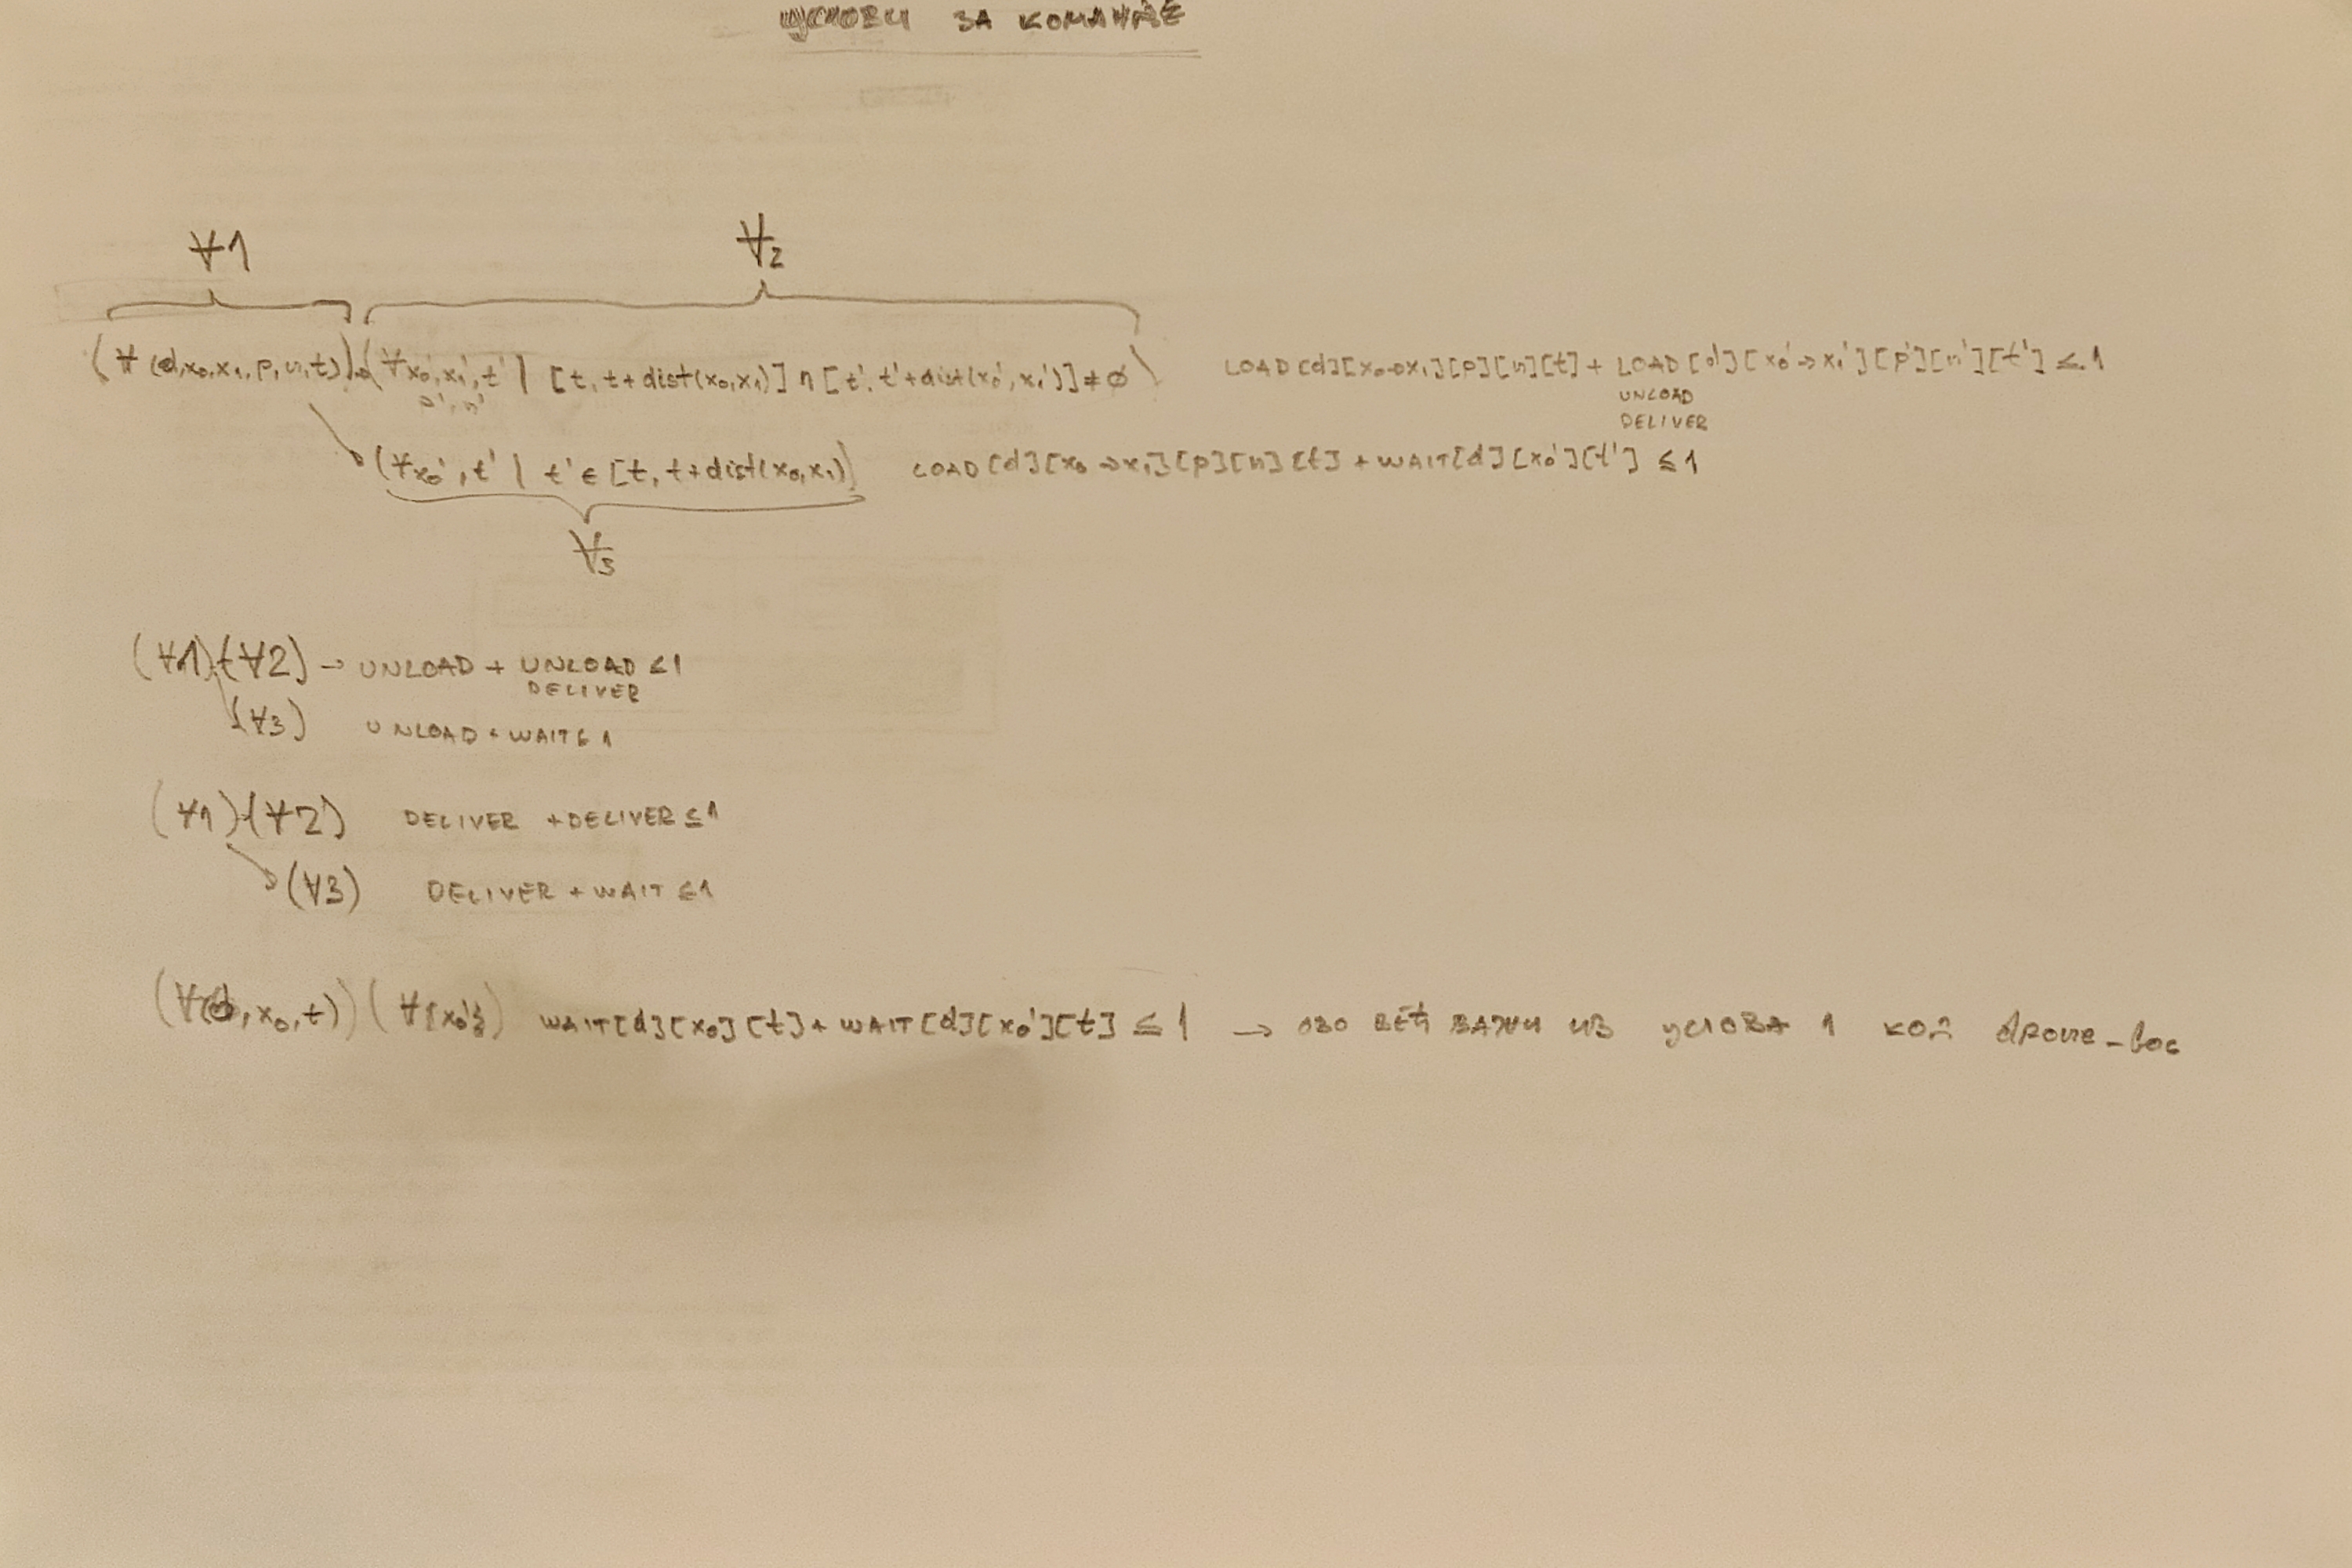 УСЛОВИ ЗА КОМАНДЕ
∀1 ∀2
(∀ (d,x₀,x₁,p,n,t)) (∀x₀',x₁',t' | [t, t+dist(x₀,x₁)] ∩ [t', t'+dist(x₀',x₁')] ≠ ∅) LOAD[d][x₀→x₁][p][n][t] + LOAD[d][x₀'→x₁'][p'][n'][t'] ≤ 1
p', n' UNLOAD
DELIVER
(∀x₀', t' | t' ∈ [t, t+dist(x₀,x₁)]) LOAD[d][x₀→x₁][p][n][t] + WAIT[d][x₀'][t'] ≤ 1
∀3
(∀1)(∀2) → UNLOAD + UNLOAD ≤ 1
DELIVER
(∀3) UNLOAD + WAIT ≤ 1
(∀1)(∀2) DELIVER + DELIVER ≤ 1
(∀3) DELIVER + WAIT ≤ 1
(∀(d,x₀,t)) (∀{x₀'}) WAIT[d][x₀][t] + WAIT[d][x₀'][t] ≤ 1 → ОВО ВЕЋ ВАЖИ ИЗ УСЛОВА 1 КОД drone_loc